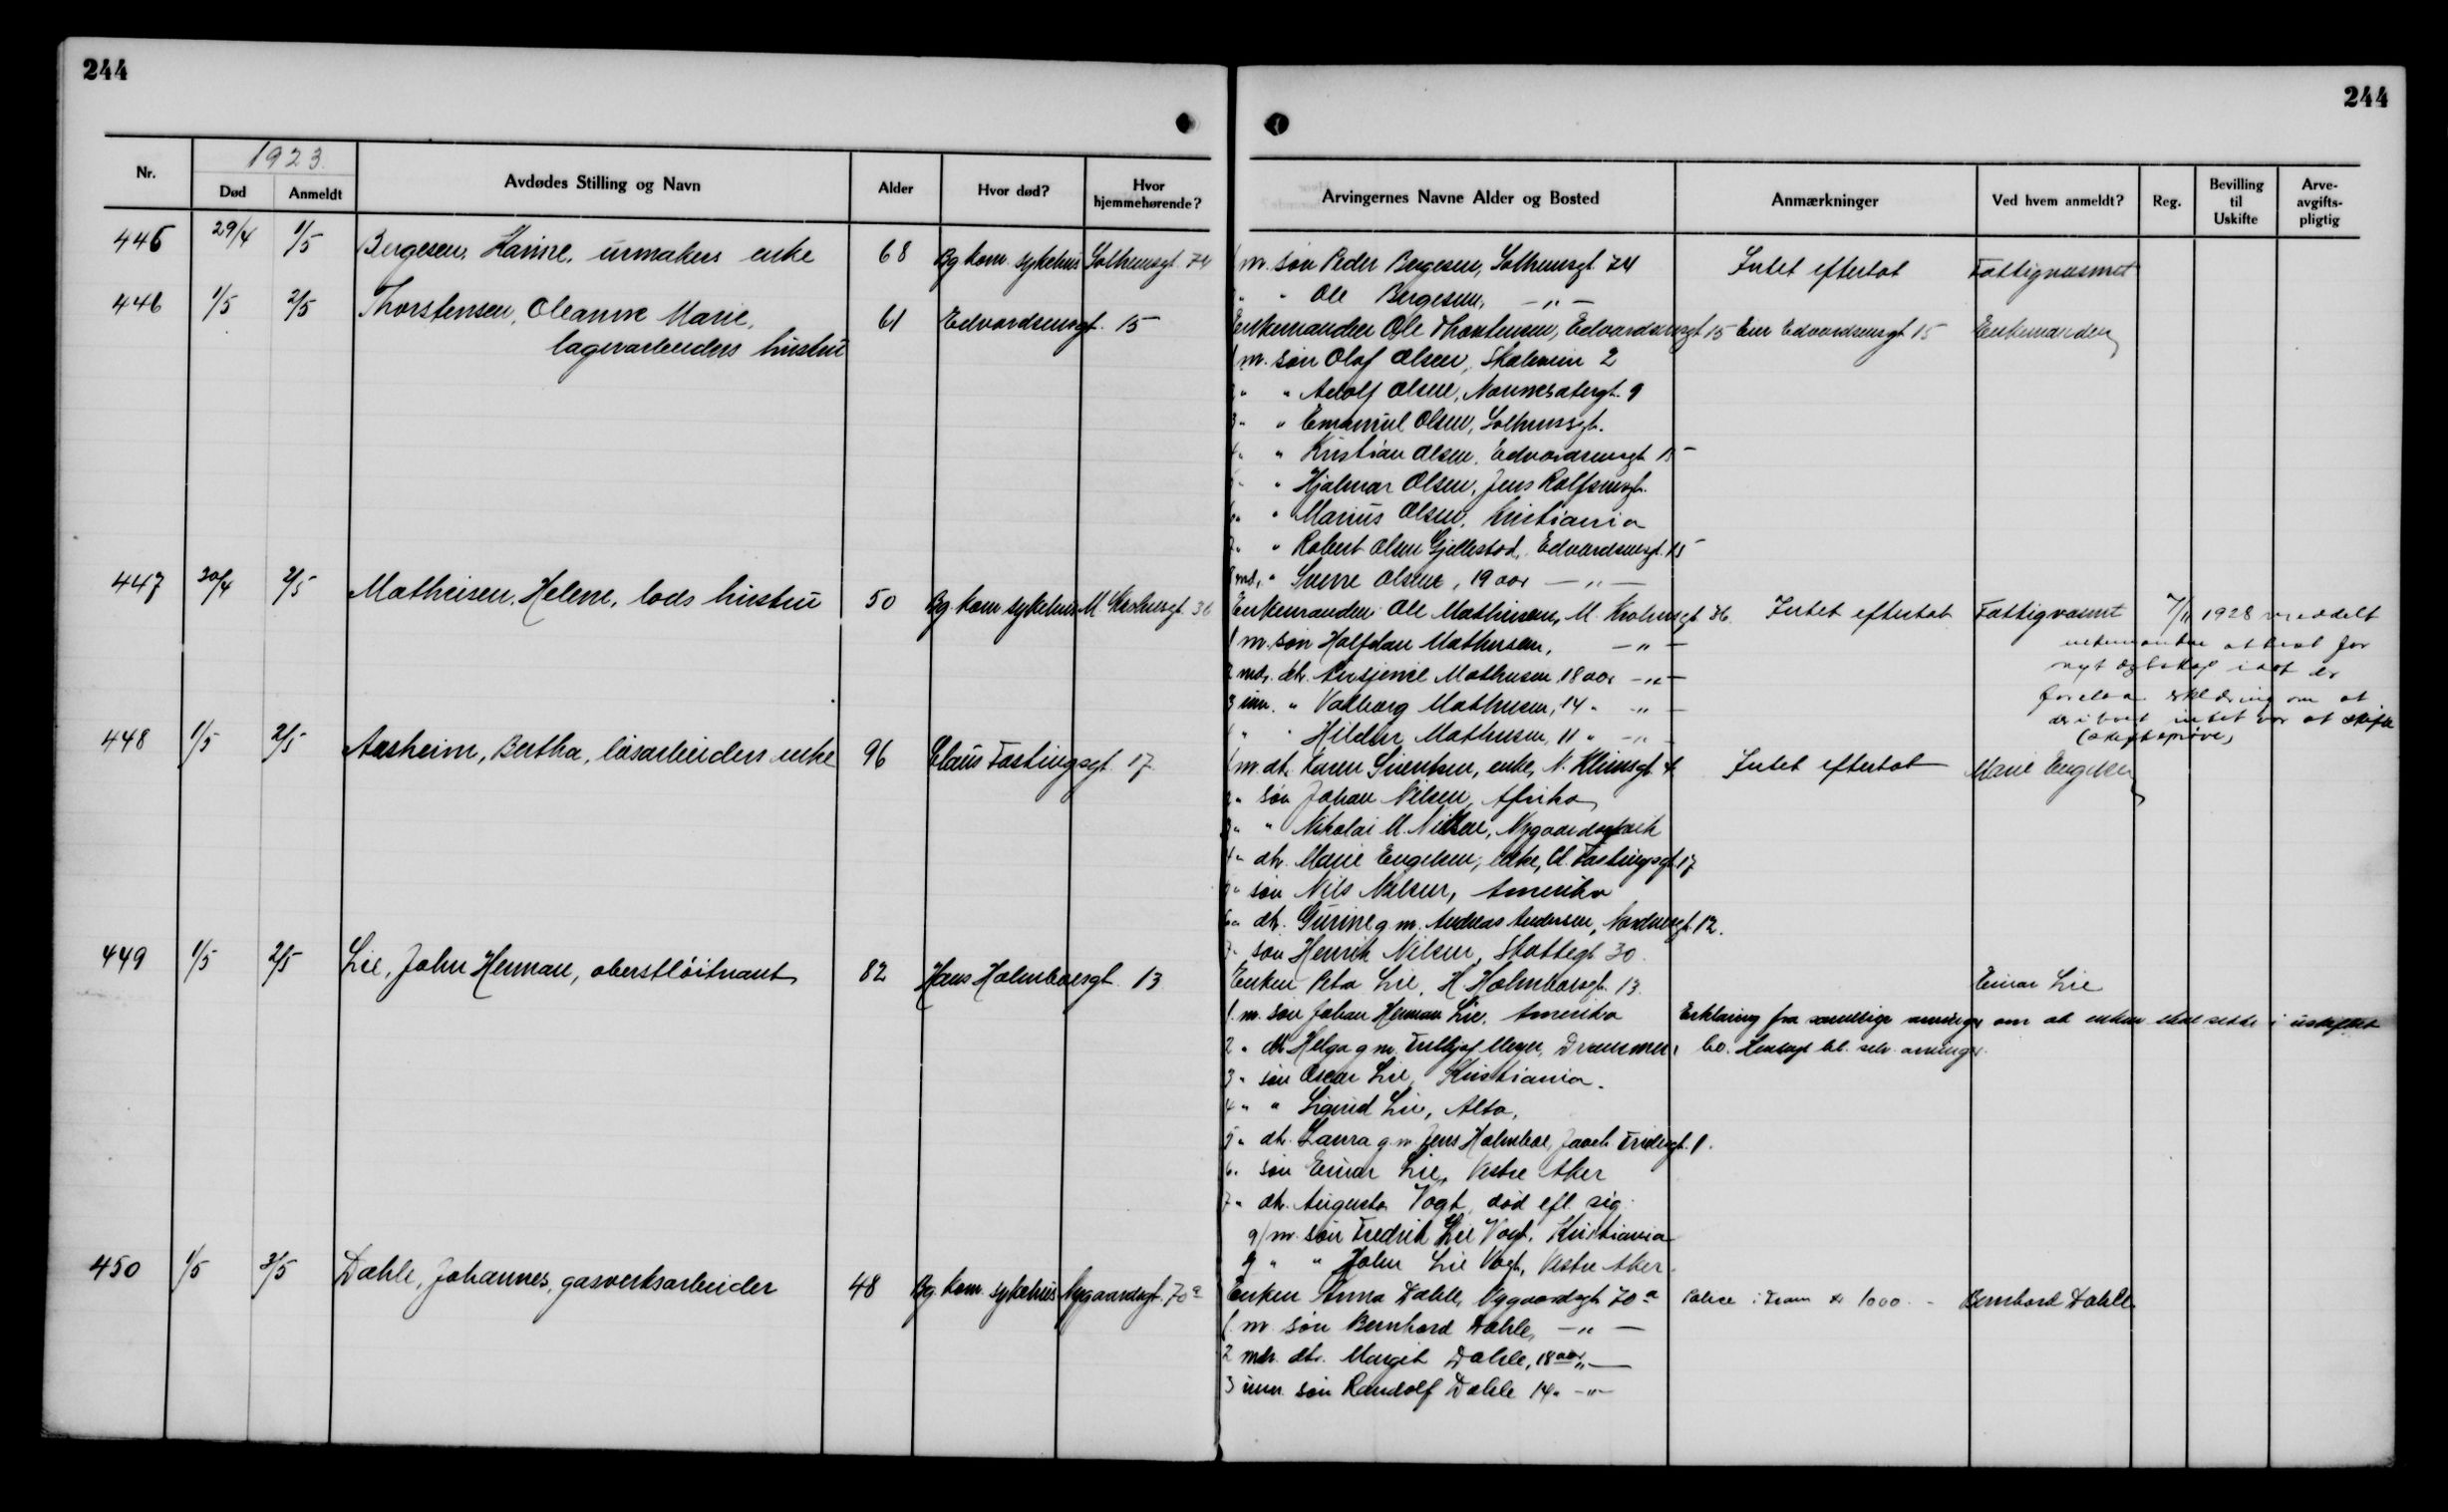 244
244
1923.
Nr.
Død
Anmeldt
Avdødes Stilling og Navn
Alder
Hvor død?
Hvor hjemmehørende?
Arvingernes Navne Alder og Bosted
Anmærkninger
Ved hvem anmeldt?
Reg.
Bevilling til Uskifte
Arve-avgifts-pligtig
445 29/4 1/5 Bergesen, urmakers enke 68 Bg kom. sykehus Solheimsgt. 74
1 m. søn Peder Bergesen, Solheimsgt 74 Intet efterlat Fattigvæsenet
" " Ole Bergesen, —"—
446 1/5 2/5 Thorstensen, Oleanne Marie, 61 Edvardsensgt. 15
lagerarbeiders hustru
Enkemanden Ole Thorstensen, Edvardsensgt 15 Eier Edvardsensgt 15 Enkemanden
1 m. søn Olaf Olsen, 2
2 " " Adolf Olsen, 9
3 " " Emanuel Olsen, Solheimsgt.
4 " " Kristian Olsen, Edvardsensgt 15
5 " " Hjalmar Olsen, Jens Rolfsensgt.
6 " " Marius Olsen, Kristiania
7 " " Robert Olsen Gjellestad, Edvardsensgt. 15
8 md. " Sverre Olsen, 19 aar —"—
447 30/4 2/5 Mathisen, Helene, lods hustru 50 Bg. kom sykehus M. Krohnsgt. 36
Enkemanden Ole Mathisen, M. Krohnsgt 36. Intet efterlat Fattigvæsnet 7/11 1928 meddelt
1 m. søn Halfdan Mathisen, —"— enkemanden attest for
2 md. dtr. Mathisen 18 aar —"— nyt egteskap idet der
3 um. " Valborg Mathisen, 14 " —"— forelaa erklæring om at
" " Mathisen, 11 " —"— der i boet intet var at skifte
448 1/5 2/5 Aasheim, Bertha, løsarbeiders enke 96 Claus Fastingsgt. 17.
1 m. dtr. Karen Sivertsen, enke, N. Klimsgt 4. Intet efterlat Marie Engelsen
2 " søn Johan Nilsen, Afrika
3 " " Nikolai M. Nilsen, Nygaardspark
4 " dtr. Marie Engelsen, enke, Cl. Fastingsgt. 17
5 " søn Nils Nilsen, Amerika
6 " dtr. Gurine g. m. Andreas Andersen, Nordnesgt. 12.
7 " søn Henrik Nilsen, Skottegt 30.
449 1/5 2/5 Lie, John Herman, oberstløitnant 82 Hans Holmboesgt. 13
Enken Peta Lie, H. Holmboesgt. 13. Einar Lie
1. m. søn Johan Herman Lie, Amerika Erklæring fra samtlige arvinger om at enken skal sidde i uskiftet
2 " dtr Helga g m. Fridtjof Meyer, Drammen bo.
3 " søn Oscar Lie, Kristiania.
4 " " Sigurd Lie, Alta,
5 " dtr. Laura g. m. Jens Holmboe, 1.
6 " søn Einar Lie, Vestre Aker
7 " dtr. Augusta Vogt, død eft. sig.
a/ m. søn Fredrik Lie Vogt, Kristiania
" " John Lie Vogt, Vestre Aker.
450 1/5 3/5 Dahle, Johannes, gasverksarbeider 48 Bg. kom. sykehus Nygaardsgt. 70a
Enken Anna Dahle, Nygaardsgt 70a Police i kr 1000. – Bernhard Dahle
1. m. søn Bernhard Dahle, —"—
2 md. dtr. Margit Dahle, 18 aar, "—
3 um. søn Randolf Dahle 14 " —"—